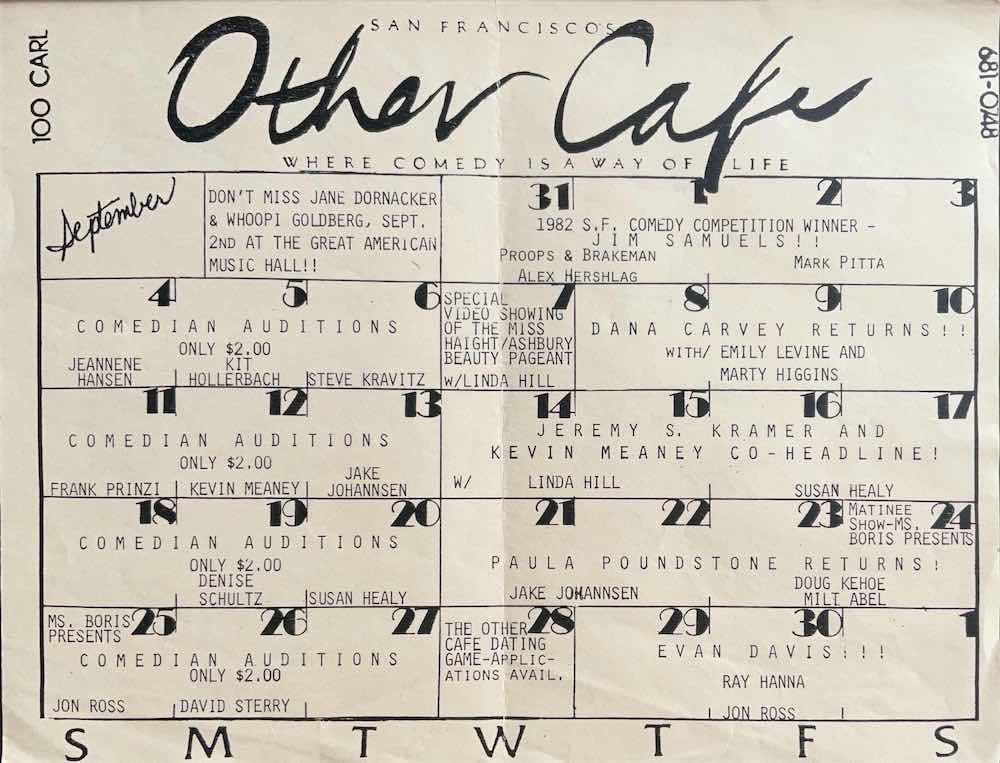 SAN FRANCISCO'S
100 CARL
Other Cafe
681-0748
WHERE COMEDY IS A WAY OF LIFE
September
DON'T MISS JANE DORNACKER
& WHOOPI GOLDBERG, SEPT.
2ND AT THE GREAT AMERICAN
MUSIC HALL!!
31 1 2 3
1982 S.F. COMEDY COMPETITION WINNER -
JIM SAMUELS!!
PROOPS & BRAKEMAN MARK PITTA
ALEX HERSHLAG
4 5 6
COMEDIAN AUDITIONS
ONLY $2.00
JEANNENE
HANSEN
KIT
HOLLERBACH
STEVE KRAVITZ
7
SPECIAL
VIDEO SHOWING
OF THE MISS
HAIGHT/ASHBURY
BEAUTY PAGEANT
W/LINDA HILL
8 9 10
DANA CARVEY RETURNS!!
WITH/ EMILY LEVINE AND
MARTY HIGGINS
11 12 13
COMEDIAN AUDITIONS
ONLY $2.00
FRANK PRINZI
KEVIN MEANEY
JAKE
JOHANNSEN
14 15 16 17
JEREMY S. KRAMER AND
KEVIN MEANEY CO-HEADLINE!
W/ LINDA HILL
SUSAN HEALY
18 19 20
COMEDIAN AUDITIONS
ONLY $2.00
DENISE
SCHULTZ
SUSAN HEALY
21 22 23 24
MATINEE
SHOW-MS.
BORIS PRESENTS
PAULA POUNDSTONE RETURNS!
JAKE JOHANNSEN
DOUG KEHOE
MILT ABEL
25 26 27
MS. BORIS
PRESENTS
COMEDIAN AUDITIONS
ONLY $2.00
JON ROSS
DAVID STERRY
28
THE OTHER
CAFE DATING
GAME-APPLIC-
ATIONS AVAIL.
29 30 1
EVAN DAVIS!!!
RAY HANNA
JON ROSS
S M T W T F S